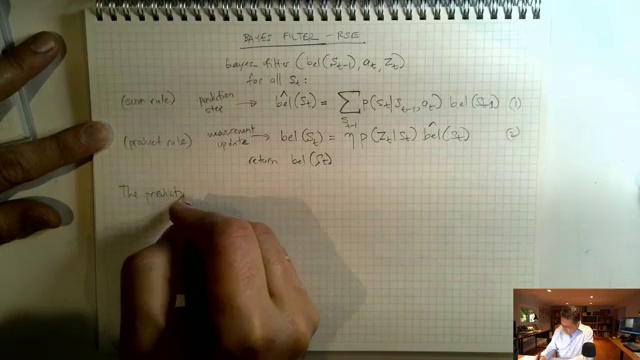 BAYES FILTER - RSE
bayes filter (bel(s_{t-1}), a_t, z_t)
for all s_t:
(sum rule) prediction step → bel^(s_t) = ∑_{s_{t-1}} p(s_t | s_{t-1}, a_t) bel(s_{t-1}) (1)
(product rule) measurement update → bel(s_t) = η p(z_t | s_t) bel^(s_t) (2)
return bel(s_t)
The predict